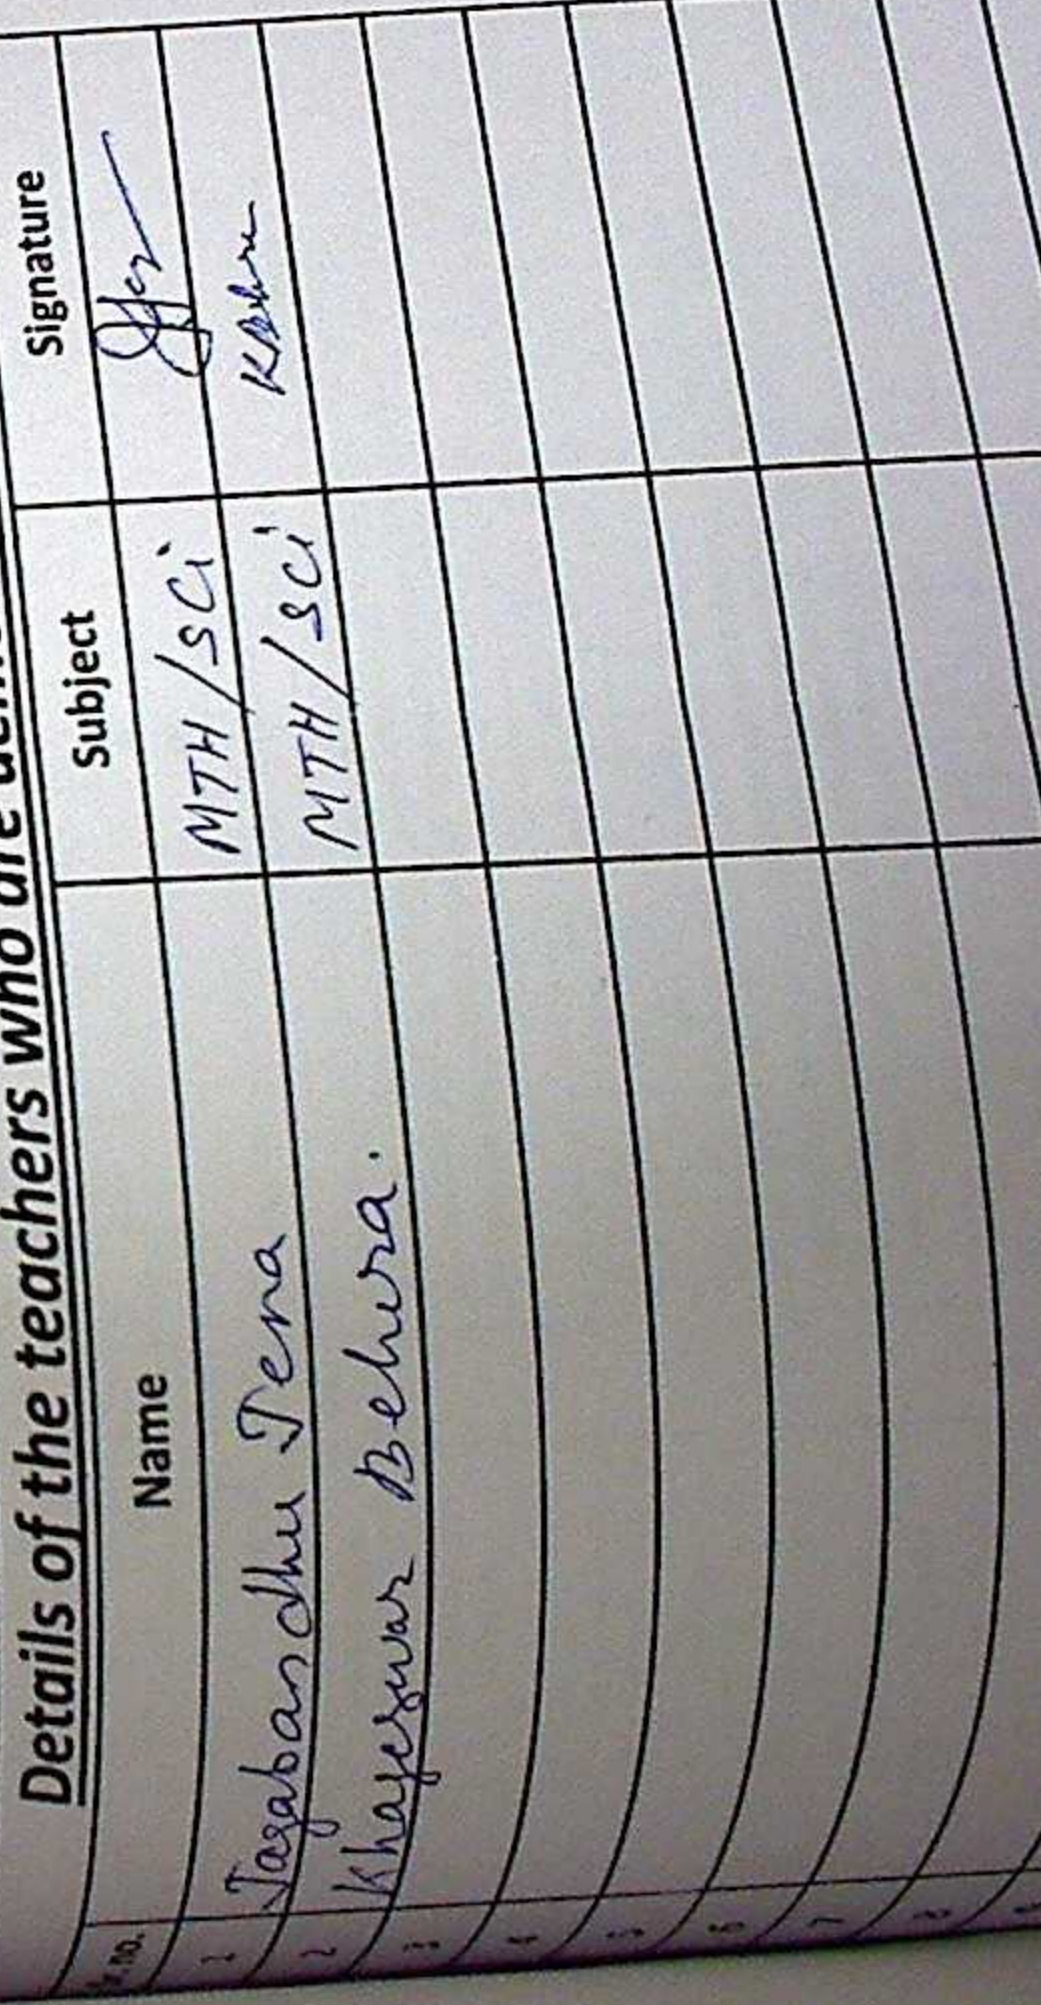 Details of the teachers who are
Sr.no. Name Subject Signature
1 Jagabandhu Jena MTH/SCi
2 Khageswar Behera. MTH/SCi
3
4
5
6
7
8
9